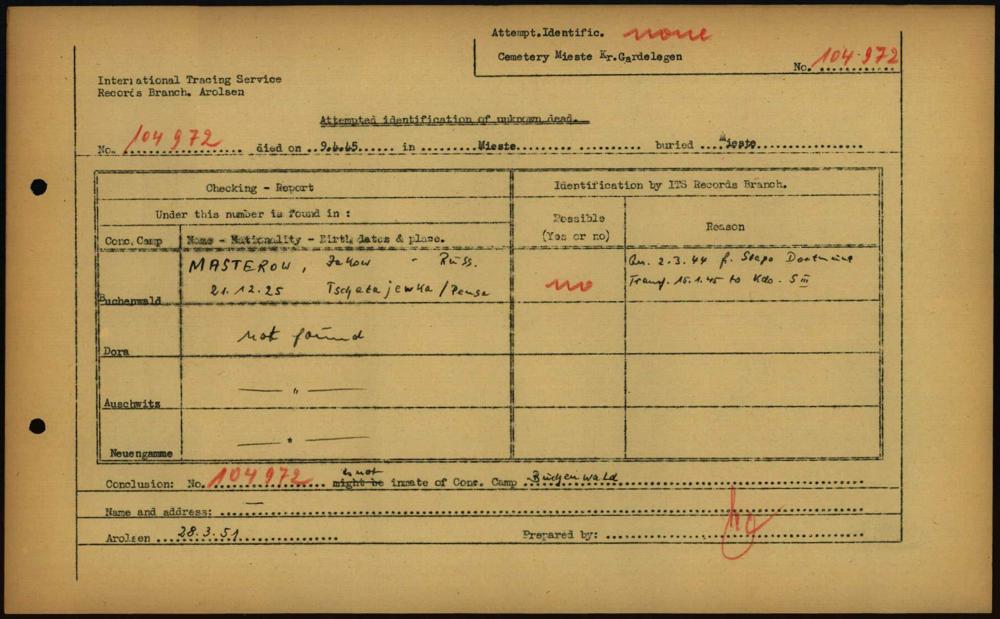 Attempt.Identific. none
Cemetery Mieste Kr.Gardelegen
No. 104 972
International Tracing Service
Records Branch. Arolsen
Attempted identification of unknown dead.
No. 104 972 died on 9.4.45 in Mieste buried Mieste
Checking - Report
Identification by ITS Records Branch.
Under this number is found in :
Possible
(Yes or no)
Reason
Conc. Camp
Name - Nationality - Birth dates & place.
Buchenwald
MASTEROW, Jakow - Russ.
21.12.25 Tschatajewka/Pensa
no
2.3.44 f. Stapo Dortmund
Transf. 15.1.45 to Kdo. S III
Dora
not found
Auschwitz
— " —
Neuengamme
— " —
Conclusion: No. 104 972 might be is not inmate of Conc. Camp Buchenwald
Name and address: —
Arolsen 28.3.51
Prepared by: